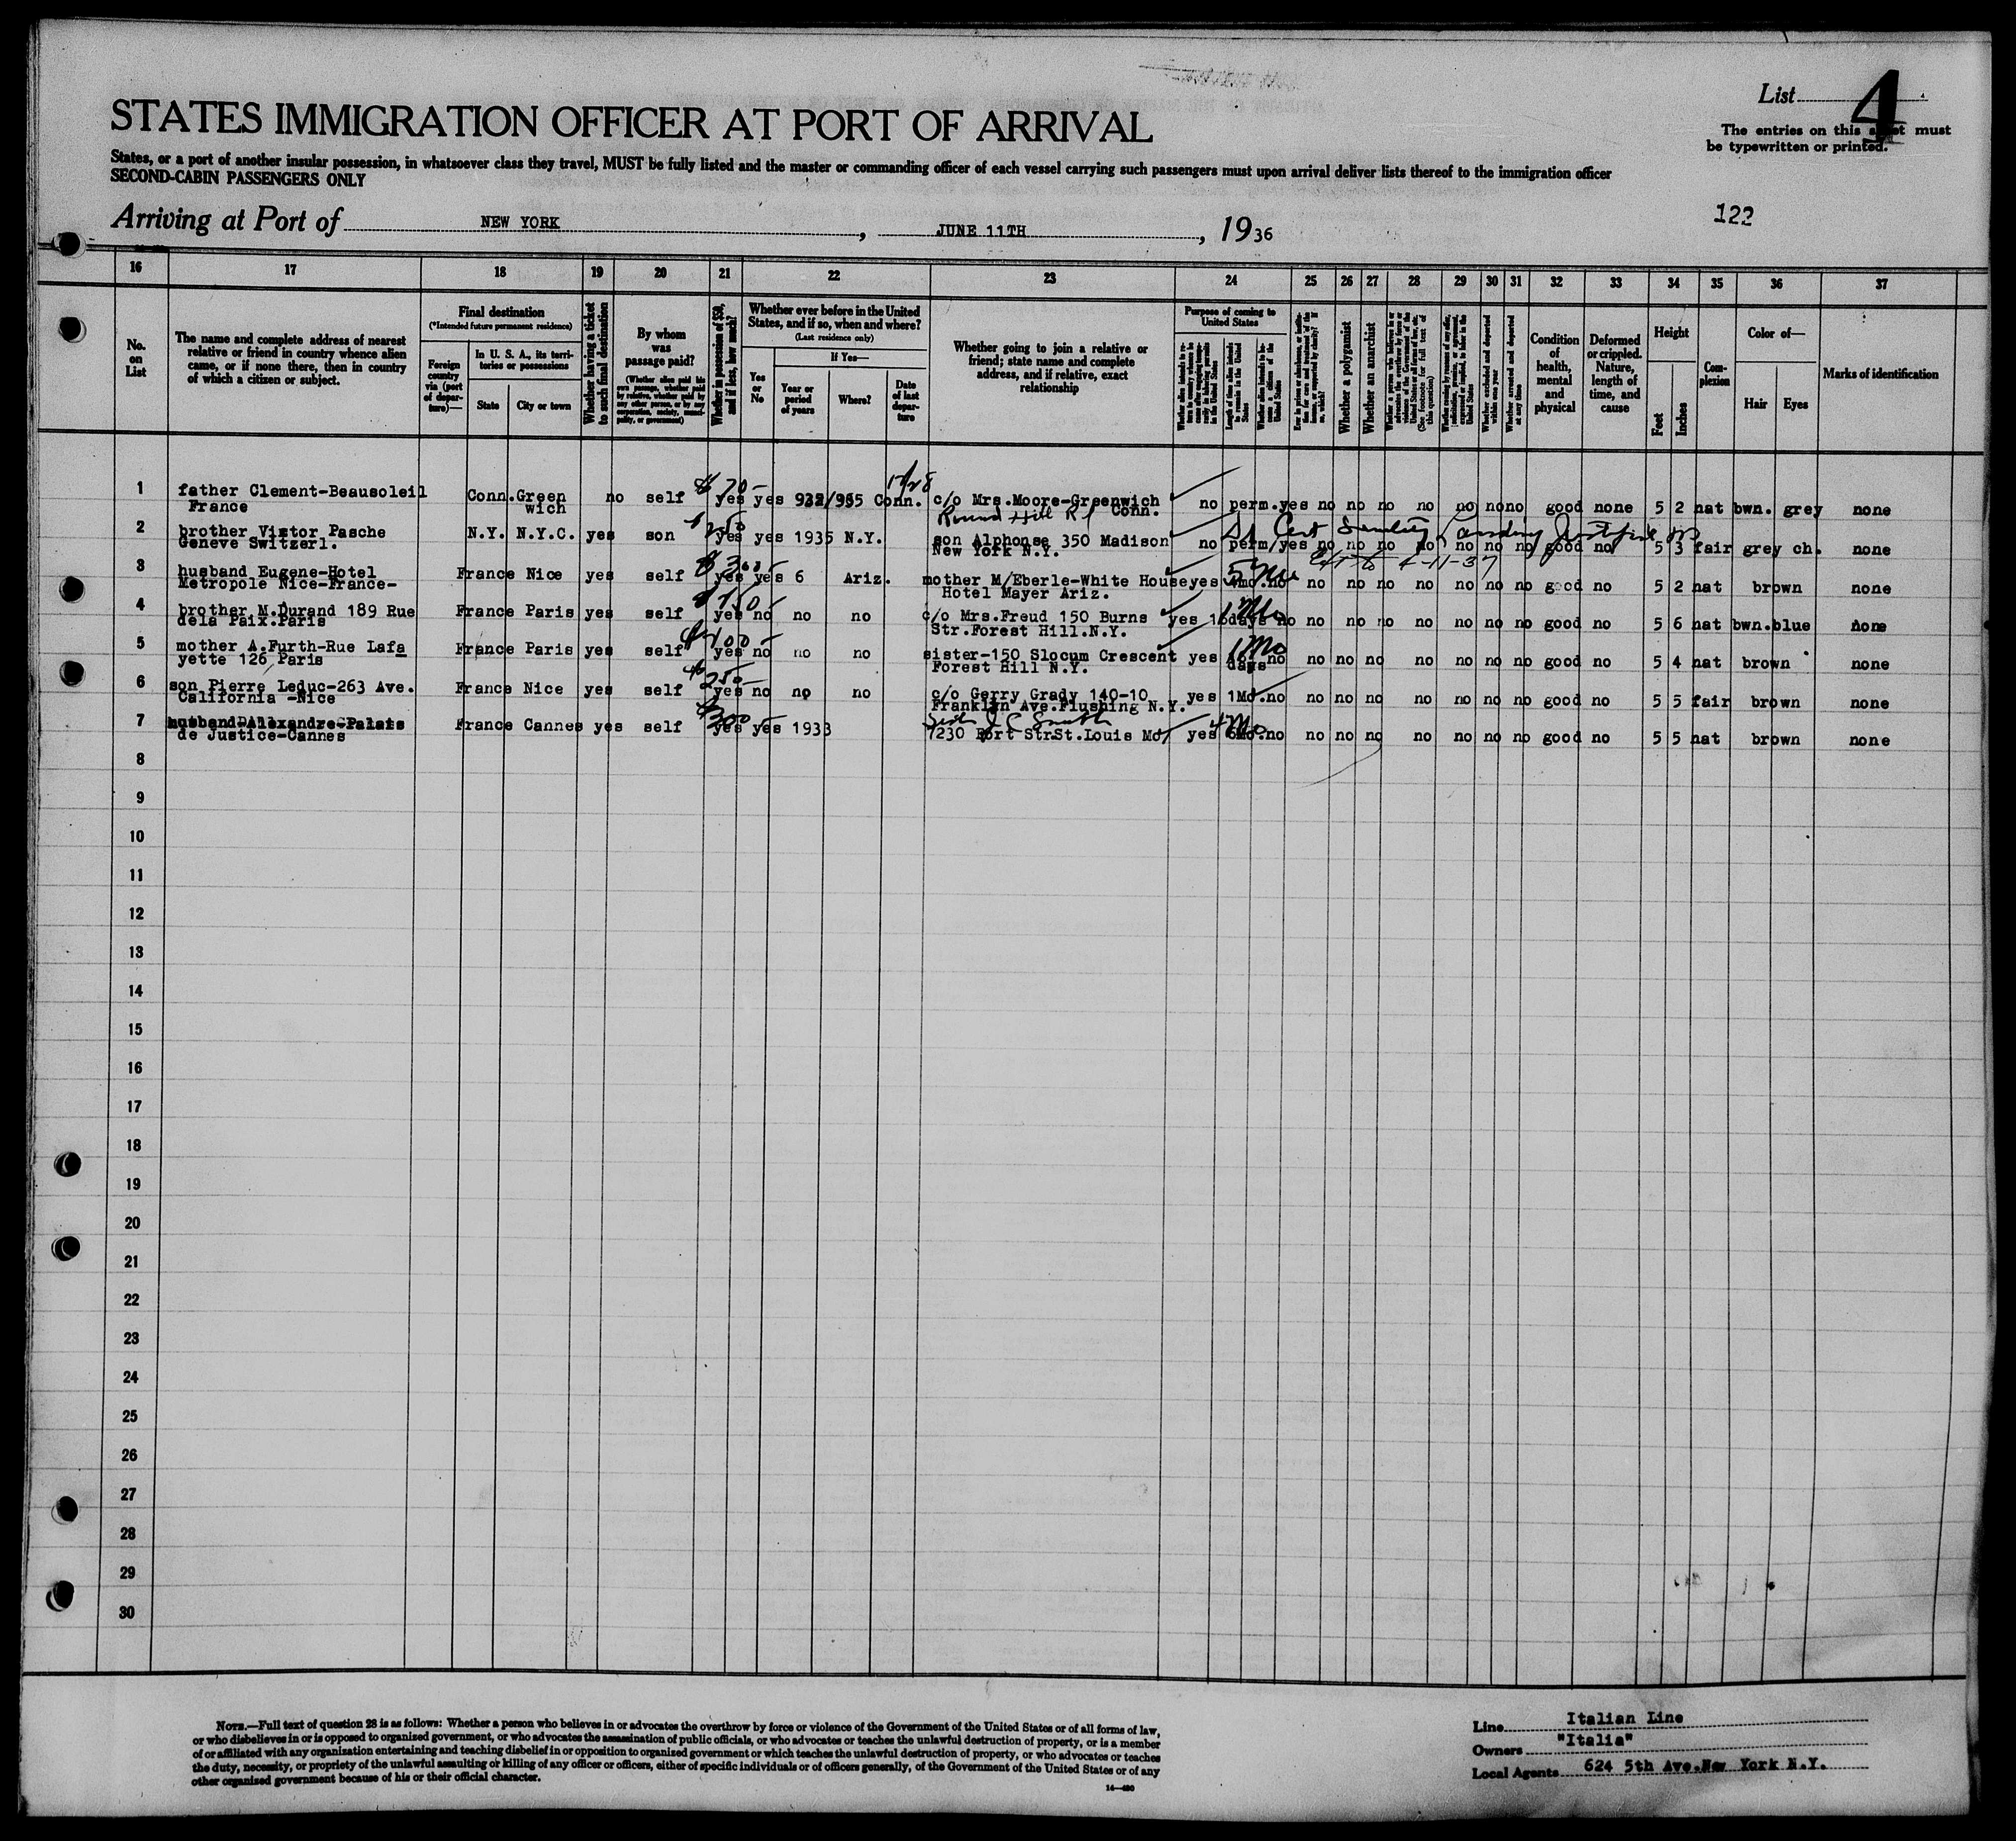 List 4
STATES IMMIGRATION OFFICER AT PORT OF ARRIVAL
The entries on this sheet must
be typewritten or printed.
States, or a port of another insular possession, in whatsoever class they travel, MUST be fully listed and the master or commanding officer of each vessel carrying such passengers must upon arrival deliver lists thereof to the immigration officer
SECOND-CABIN PASSENGERS ONLY
Arriving at Port of NEW YORK, JUNE 11TH, 1936
122
16 17 18 19 20 21 22 23 24 25 26 27 28 29 30 31 32 33 34 35 36 37
No. on List
The name and complete address of nearest
relative or friend in country whence alien
came, or if none there, then in country
of which a citizen or subject.
Final destination
(*Intended future permanent residence)
Foreign country via (port of departure)—
In U. S. A., its territories or possessions
State
City or town
Whether having a ticket to such final destination
By whom was passage paid?
(Whether alien paid his own passage, whether paid by relative, whether paid by any other person, or by any corporation, society, municipality, or government)
Whether in possession of $50, and if less, how much?
Whether ever before in the United
States, and if so, when and where?
(Last residence only)
Yes or No
If Yes—
Year or period of years
Where?
Date of last departure
Whether going to join a relative or
friend; state name and complete
address, and if relative, exact
relationship
Purpose of coming to United States
Length of time alien intends to remain in the United States
Whether a polygamist
Whether an anarchist
(See footnote for full text of this question)
Whether excluded and deported within one year
Whether arrested and deported at any time
Condition of health, mental and physical
Deformed or crippled. Nature, length of time, and cause
Height
Feet
Inches
Complexion
Color of—
Hair
Eyes
Marks of identification
1 father Clement-Beausoleil Conn. Green no self $70- yes yes Conn. c/o Mrs.Moore-Greenwich no perm.yes no no no no no no no good none 5 2 nat bwn. grey none
France wich Conn.
Round Hill Rd
2 brother Victor Pasche N.Y. N.Y.C. yes son yes yes 1935 N.Y. son Alphonse 350 Madison no perm/yes no no no no no no no good no 5 3 fair grey ch. none
Geneve Switzerl. New York N.Y.
3 husband Eugene-Hotel France Nice yes self $300- yes yes 6 Ariz. mother M/Eberle-White House yes 5 Mo no no no no no no no no good no 5 2 nat brown none
Metropole Nice-France- Hotel Mayer Ariz.
4 brother M.Durand 189 Rue France Paris yes self yes no no no c/o Mrs.Freud 150 Burns yes days no no no no no no no no good no 5 6 nat bwn.blue none
dela Paix.Paris Str.Forest Hill.N.Y.
5 mother A.Furth-Rue Lafa France Paris yes self $400- yes no no no sister-150 Slocum Crescent yes 1 Mo no no no no no no no no good no 5 4 nat brown none
yette 126 Paris Forest Hill N.Y. days
6 son Pierre Leduc-263 Ave. France Nice yes self 250- yes no no no c/o Gerry Grady 140-10 yes 1Mo.no no no no no no no no good no 5 5 fair brown none
California -Nice Franklin Ave.Flushing N.Y.
7 husband Alexandre-Palais France Cannes yes self $300 yes yes 1933 7230 Fort Str St.Louis Mo yes 4 Mo no no no no no no no no good no 5 5 nat brown none
de Justice-Cannes
8
9
10
11
12
13
14
15
16
17
18
19
20
21
22
23
24
25
26
27
28
29
30
NOTE.—Full text of question 28 is as follows: Whether a person who believes in or advocates the overthrow by force or violence of the Government of the United States or of all forms of law,
or who disbelieves in or is opposed to organized government, or who advocates the assassination of public officials, or who advocates or teaches the unlawful destruction of property, or is a member
of or affiliated with any organization entertaining and teaching disbelief in or opposition to organized government or which teaches the unlawful destruction of property, or who advocates or teaches
the duty, necessity, or propriety of the unlawful assaulting or killing of any officer or officers, either of specific individuals or of officers generally, of the Government of the United States or of any
other organized government because of his or their official character.
14—480
Line Italian Line
Owners "Italia"
Local Agents 624 5th Ave.New York N.Y.